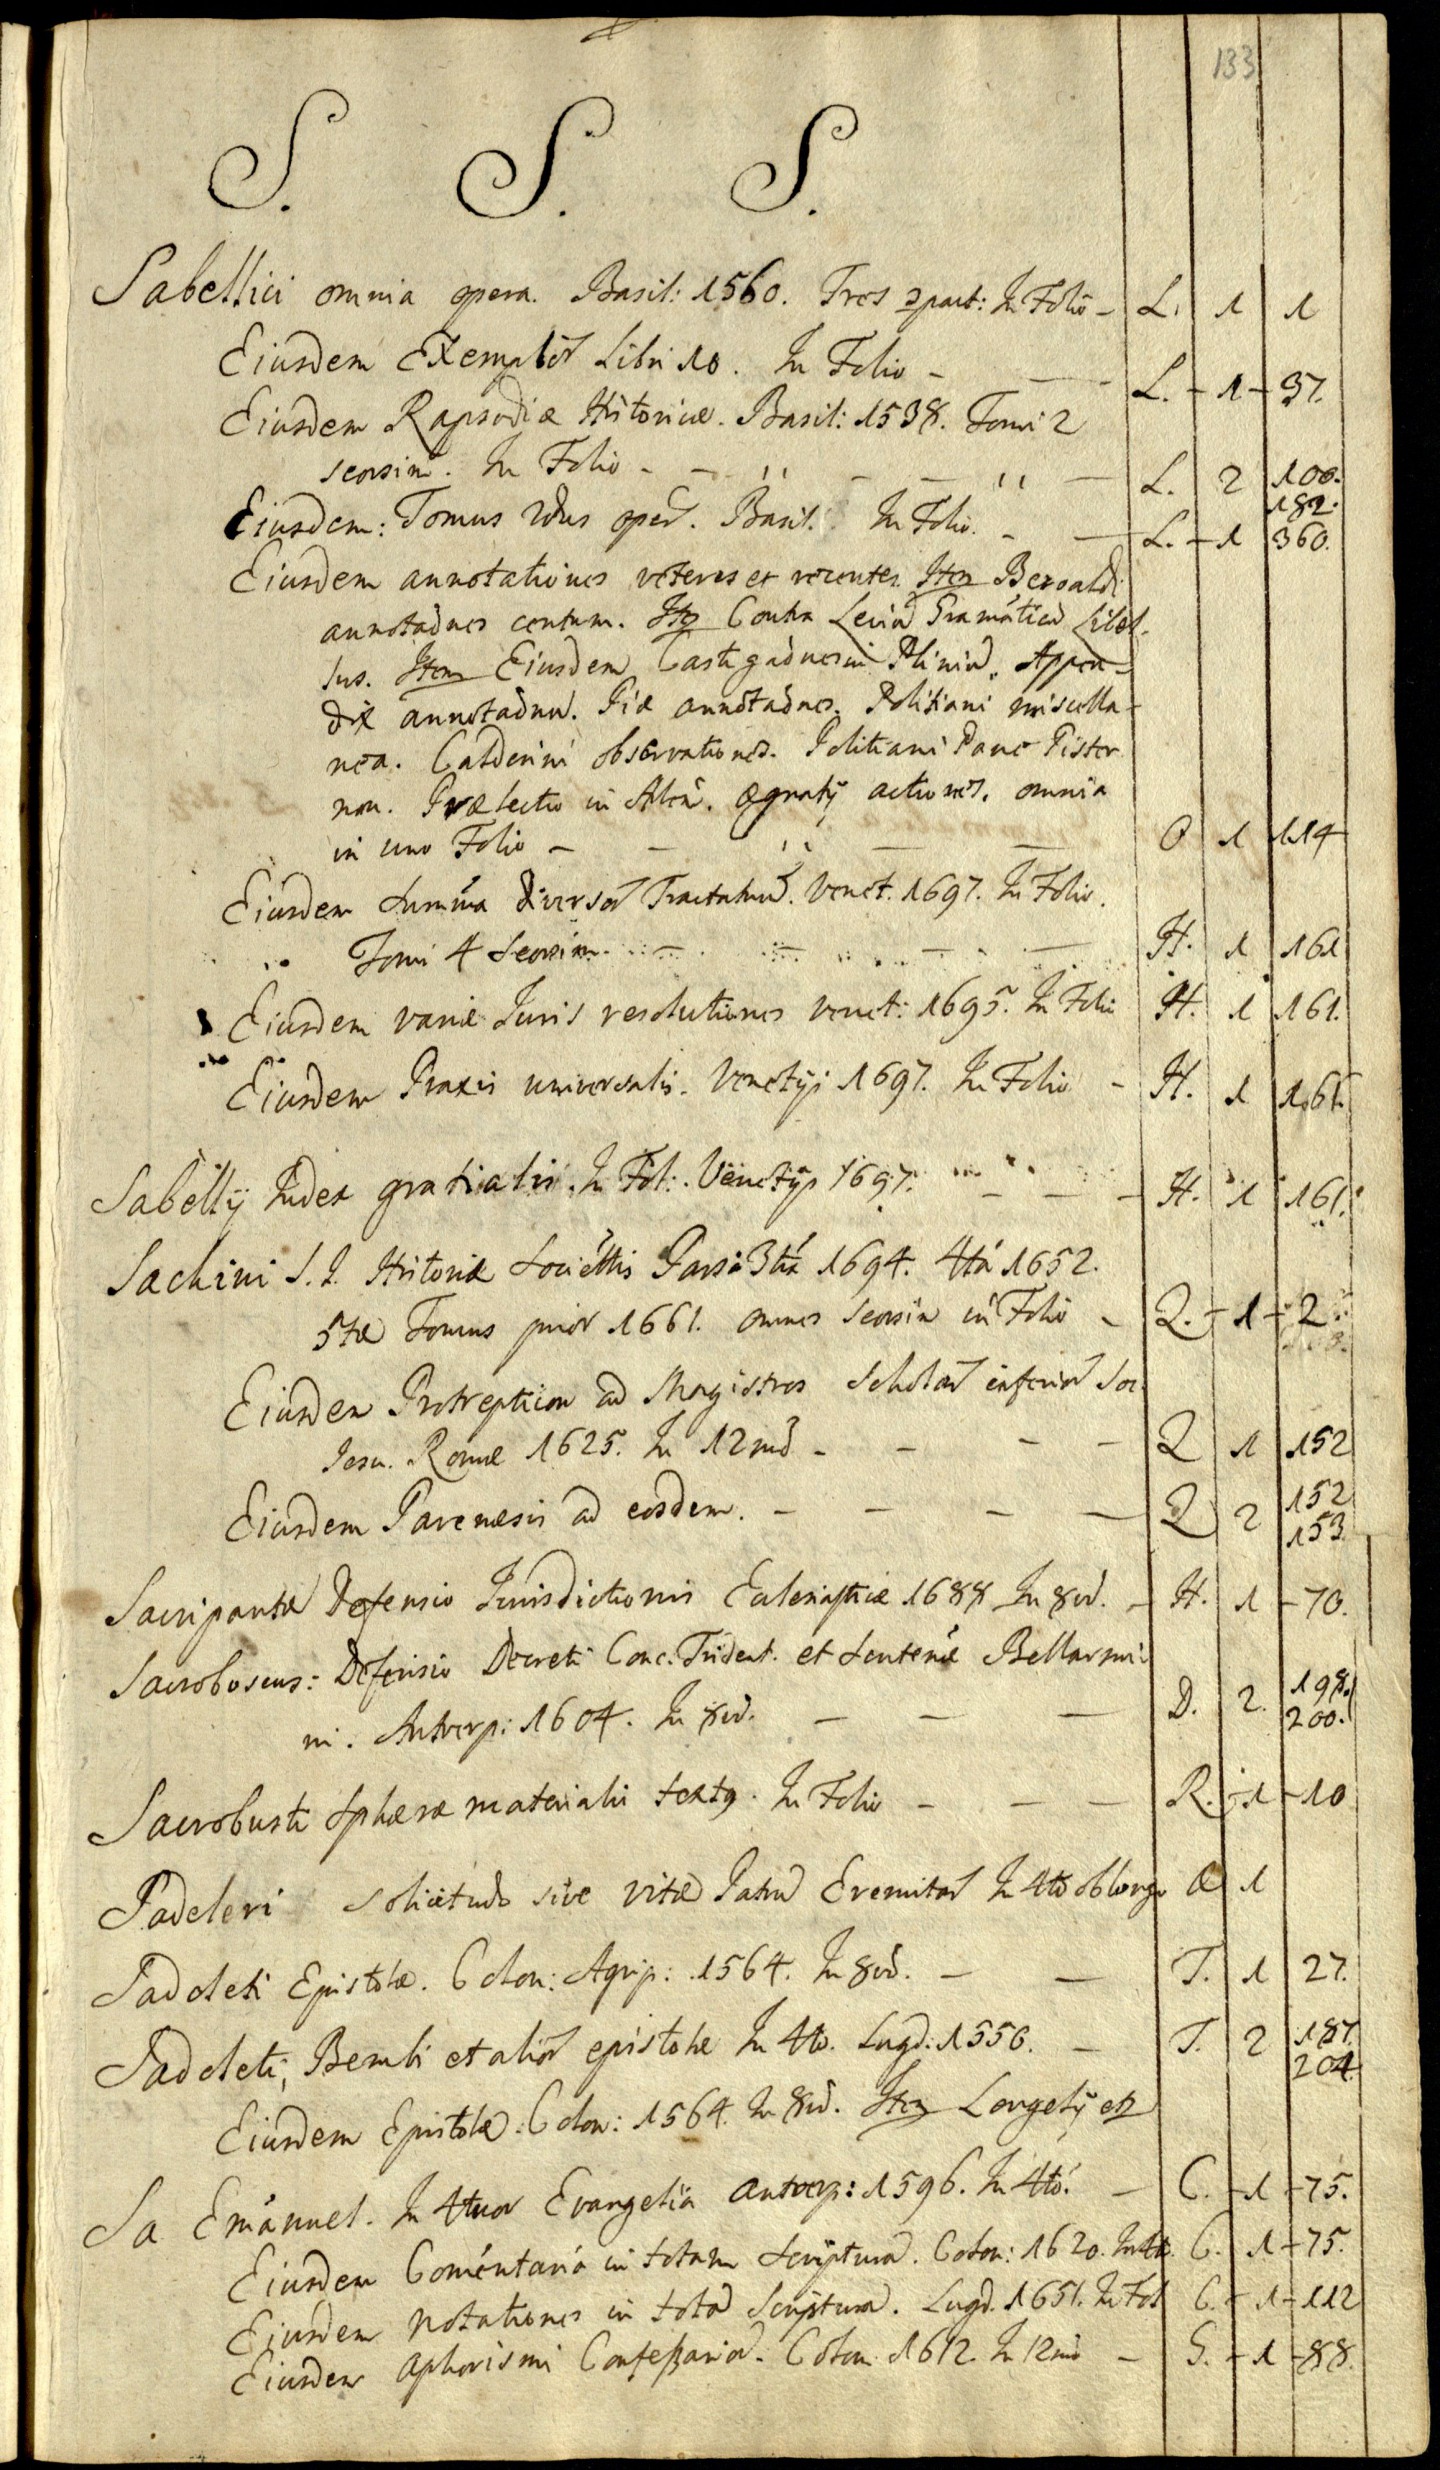 133
S. S. S.
Sabellici omnia opera. Basil: 1560. Tres part: In Folio – L. 1 1
Eiusdem Exemplor Libri 10. In Folio – L. – 1 – 37.
Eiusdem Rapsodiæ Historicæ. Basil: 1538. Tomi 2
seorsim. In Folio – – – – – L. 2 100.
182.
Eiusdem: Tomus 2dus oper. Basil. In Folio. – – L. – 1 360.
Eiusdem annotationes veteres et recentes. Item Beroaldi
annotaones centum. Item Contra Gramatica Libel-
lus. Item Eiusdem Castigaones in Pliniu. Appen-
dix annotaonu. Piæ annotaones. Politiani miscella-
nea. Calderini observationes. Politiani Pane
non. Prælectio in actiones. omnia
in uno Folio – – – – – O 1 114
Eiusdem Summa diversor Tractatuu. Venet. 1697. In Folio.
Tomi 4 Seorsim. – – – – H. 1 161
Eiusdem variæ Juris resolutiones venet: 1695. In Folio H. 1 161.
Eiusdem Praxis universalis. Venetijs 1697. In Folio – H. 1 161.
Sabelly Index gratialis. In Fol: Venetijs 1697. – – – H. 1 161.
Sachini S. J. Historiæ Societtis Pars 3tia 1694. 4ta 1652.
5tæ Tomus prior 1661. omnes Seorsim in Folio – Q. – 1 – 2.
Eiusdem Protrepticon ad Magistros Scholar inferior Soc.
Jesu. Romæ 1625. In 12mo – – – – Q 1 152
Eiusdem Parenæsis ad eosdem. – – – – Q 2 152
153.
Sacripantæ Defensio Jurisdictionis Eclesiasticæ 1688 In 8vo. – H. 1 – 70.
Sacroboscus: Defensio Decreti Conc. Trident. et Sentenæ Bellarmi-
ni. Antverp: 1604. In 8vo. – – – D. 2. 198.
200.
Sacrobusti Sphæræ materialis textq. In Folio – – – R. – 1 – 10
Sadeleri Solicitudo sive vitæ Patru Eremitar In 4to oblongo Æ 1
Sadoleti Epistolæ. Colon: Agrip: 1564. In 8vo. – – T. 1 27.
Sadoleti, Bembi et alior epistolæ In 4to. Lugd: 1556. – T. 2 187.
204.
Eiusdem Epistolæ. Colon: 1564. In 8vo. Item Longelij etz
Sa Emanuel. In 4tuor Evangelia Antverp: 1596. In 4to. – C. – 1 – 75.
Eiusdem Comentaria in totam Scriptura. Colon: 1620. In 4to. C. 1 – 75.
Eiusdem Notationes in tota Scriptura. Lugd. 1651. In Fol C. – 1 – 112
Eiusdem Aphorismi Confeßarior. Colon 1612. In 12mo – S. – 1 – 88.